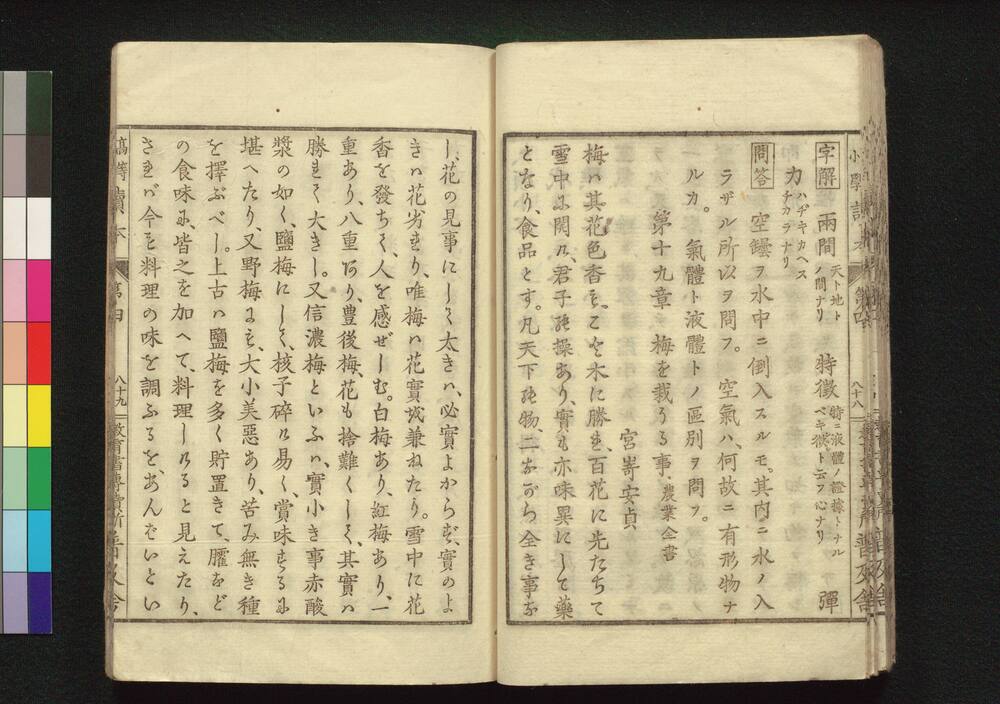 字解 兩間 天ト地ト ノ間ナリ 特徵 特ニ液體ノ證據トナル ベキ徴ト云フ心ナリ 彈
力 ハヂキカヘス チカラナリ
問答 空罎ヲ水中ニ倒入スルモ。其内ニ水ノ入
ラザル所以ヲ問フ。空氣ハ、何故ニ有形物ナ
ルカ。氣體ト液體トノ區別ヲ問フ。
第十九章 梅を栽うる事 農業全書
宮嵜安貞
梅ハ其花色香も、こと木に勝れ、百花に先たちて
雪中に開ハ、君子の操あり、實も亦味異にして藥
となり、食品とす。凡天下の物、二ながら全き事な
し、花の見事にして大きハ、必實よからず、實のよ
きハ花劣れり、唯梅ハ花實を兼ねたり。雪中に花
香を發ちて、人を感ぜしむ。白梅あり、紅梅あり、一
重あり、八重あり、豊後梅、花も捨難くして、其實ハ
勝れて大きし。又信濃梅といふハ、實小き事赤酸
漿の如く、鹽梅にして、核子碎け易く、賞味するに
堪へたり、又野梅にも、大小美惡あり、苦み無き種
を擇ぶべし。上古ハ鹽梅を多く貯置きて、臛など
の食味に、皆之を加へて、料理しけると見えたり、
されバ今も料理の味を調ふるを、あんばいとい
高等讀本 第四 八十九
八十八